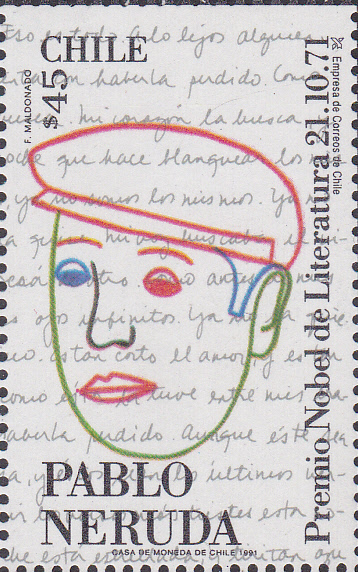 Eso es todo. A lo lejos alguien
CHILE
$45
F. MALDONADO
con haberla perdido. Como
mi corazón la busca
oche que hace blanquear los m
ya no somos los mismos. Ya
quise mi voz buscaba
será otro. Como antes de mis
s ojos infinitos. Ya no la
Es tan corto el amor, y es
como ésta la tuve entre mis
haberla perdido. Aunque éste sea
a, y los últimos
PABLO
NERUDA
esta
CASA DE MONEDA DE CHILE 1991
estrellada, y tiritan
Premio Nobel de Literatura 21.10.71
Empresa de Correos de Chile